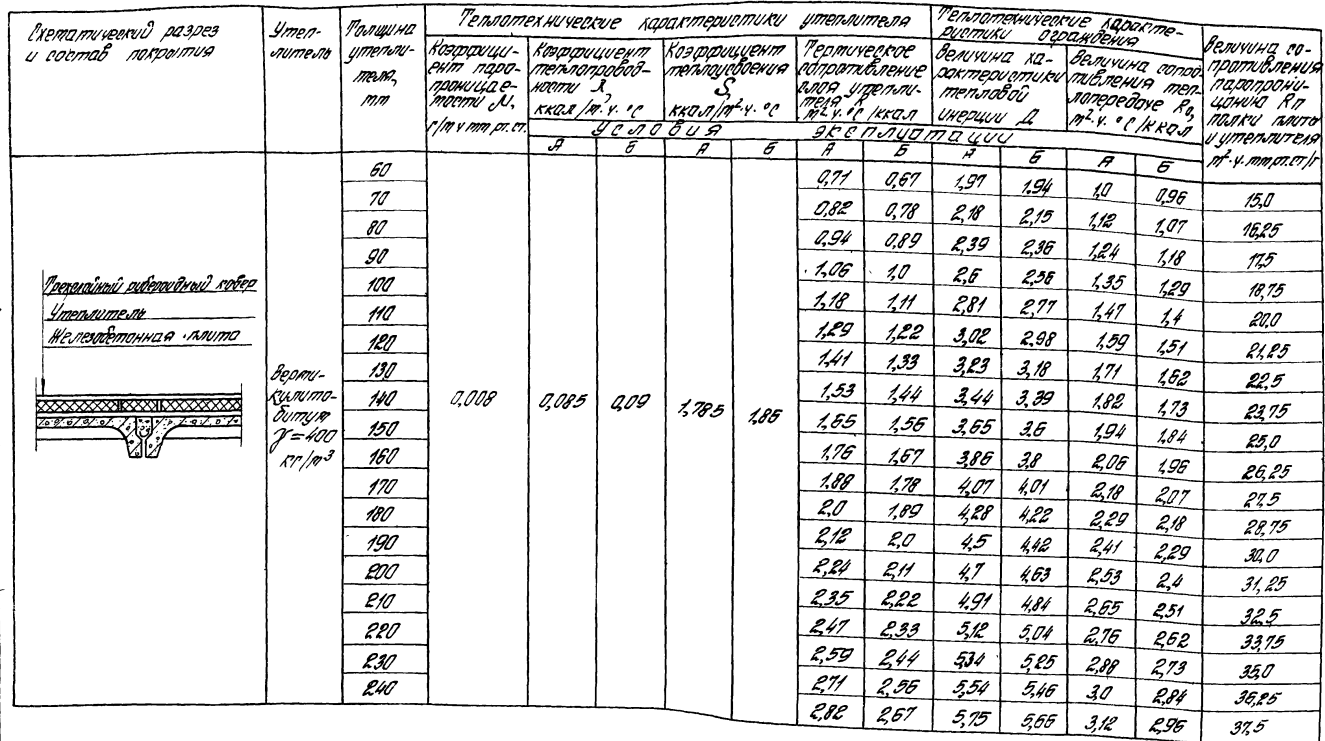 Схематический разрез и состав покрытия
Утеплитель
Толщина утеплителя, мм
Теплотехнические характеристики утеплителя
Коэффициент паропроницаемости μ, г/м ч мм рт. ст.
Коэффициент теплопроводности λ, ккал/м·ч·°С
Коэффициент теплоусвоения S, ккал/м²·ч·°С
Термическое сопротивление слоя утеплителя R м²·ч·°С/ккал
Теплотехнические характеристики ограждения
Величина характеристики тепловой инерции Д
Величина сопротивления теплопередаче R₀, м²·ч·°С/ккал
Величина сопротивления паропроницанию Rп полки плиты и утеплителя м²·ч·мм рт. ст/г
Условия эксплуатации
А Б А Б А Б А Б А Б
Трехслойный рубероидный ковер
Утеплитель
Железобетонная плита
Вермикулитобитум γ=400 кг/м³
0,008 0,085 0,09 1,785 1,86
60 0,71 0,67 1,97 1,94 1,0 0,96 15,0
70 0,82 0,78 2,18 2,15 1,12 1,07 16,25
80 0,94 0,89 2,39 2,36 1,24 1,18 17,5
90 1,06 1,0 2,6 2,56 1,35 1,29 18,75
100 1,18 1,11 2,81 2,77 1,47 1,4 20,0
110 1,29 1,22 3,02 2,98 1,59 1,51 21,25
120 1,41 1,33 3,23 3,18 1,71 1,62 22,5
130 1,53 1,44 3,44 3,39 1,82 1,73 23,75
140 1,65 1,56 3,65 3,6 1,94 1,84 25,0
150 1,76 1,67 3,86 3,8 2,06 1,96 26,25
160 1,88 1,78 4,07 4,01 2,18 2,07 27,5
170 2,0 1,89 4,28 4,22 2,29 2,18 28,75
180 2,12 2,0 4,5 4,42 2,41 2,29 30,0
190 2,24 2,11 4,7 4,63 2,53 2,4 31,25
200 2,35 2,22 4,91 4,84 2,65 2,51 32,5
210 2,47 2,33 5,12 5,04 2,76 2,62 33,75
220 2,59 2,44 5,34 5,25 2,88 2,73 35,0
230 2,71 2,56 5,54 5,46 3,0 2,84 36,25
240 2,82 2,67 5,75 5,66 3,12 2,96 37,5